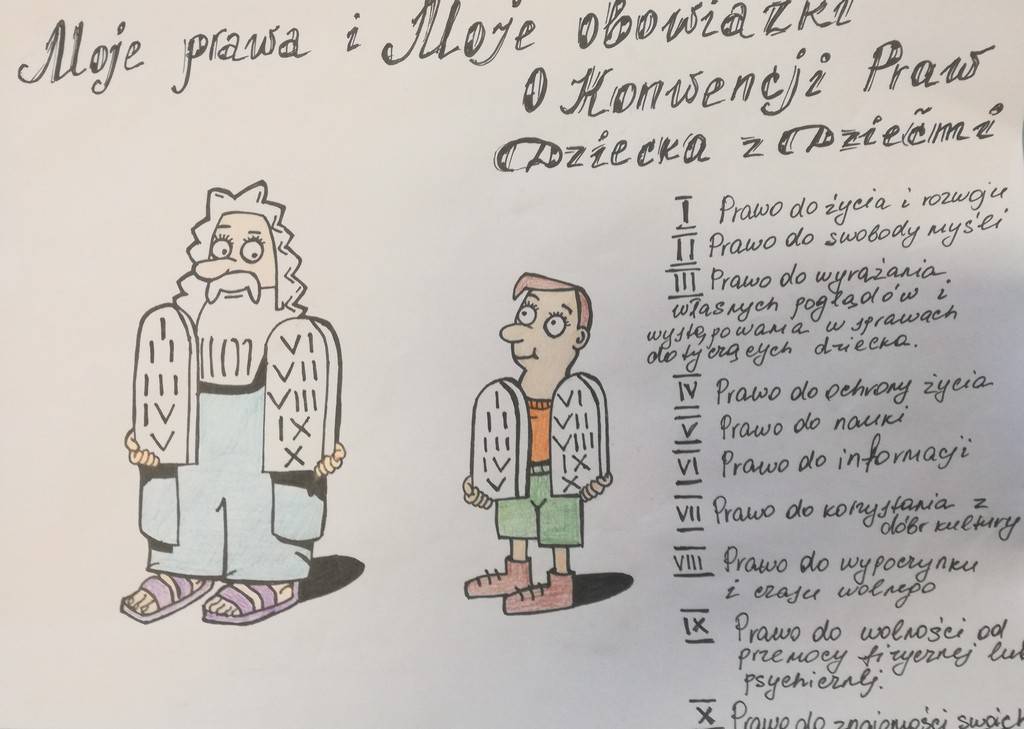 Moje prawa i Moje obowiązki
O Konwencji Praw
Dziecka z Dziećmi
I Prawo do życia i rozwoju
II Prawo do swobody myśli
III Prawo do wyrażania
własnych poglądów i
występowania w sprawach
dotyczących dziecka.
IV Prawo do ochrony życia
V Prawo do nauki
VI Prawo do informacji
VII Prawo do korzystania z
dóbr kultury
VIII Prawo do wypoczynku
i czasu wolnego
IX Prawo do wolności od
przemocy fizycznej lub
psychicznej.
X Prawo do znajomości swoich
I
II
III
IV
V
VI
VII
VIII
IX
X
I
II
III
IV
V
VI
VII
VIII
IX
X